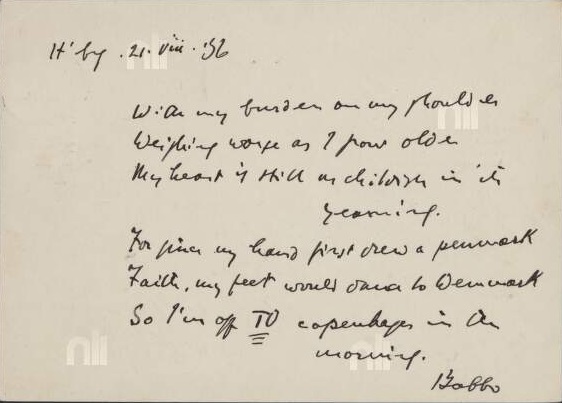 H'by . 21. viii . '36
With my burden on my shoulder
Weighing worse as I grow older
My heart is still as childish in its
yearning.
For since my hand first drew a penmark
Faith, my feet would dance to Denmark
So I'm off TO Copenhagen in the
morning.
Babbo
nli
nli
nli
nli